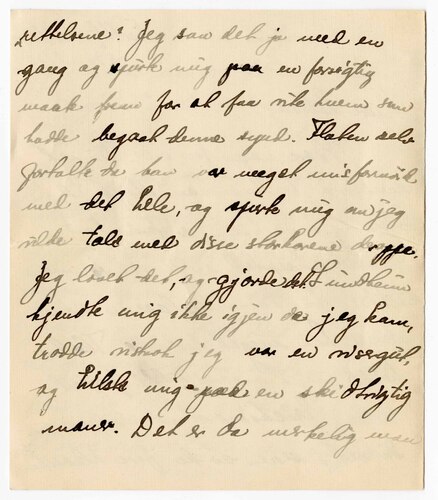 rettelsene? Jeg saa det jo med en
gang og gik mig paa en forsigtig
maate frem for at faa vite hvem som
hadde begaat denne synd. Flaten selv
fortalte da han var meget misfornøid
med det hele, og spurte mig om jeg
vilde tale med disse storkarene deroppe.
Jeg lovet det, og gjorde det. Lundheim
kjendte mig ikke igjen da jeg kom,
trodde visstnok jeg var en visergut,
og hilste mig paa en skjødesløs
maner. Det er da merkelig man